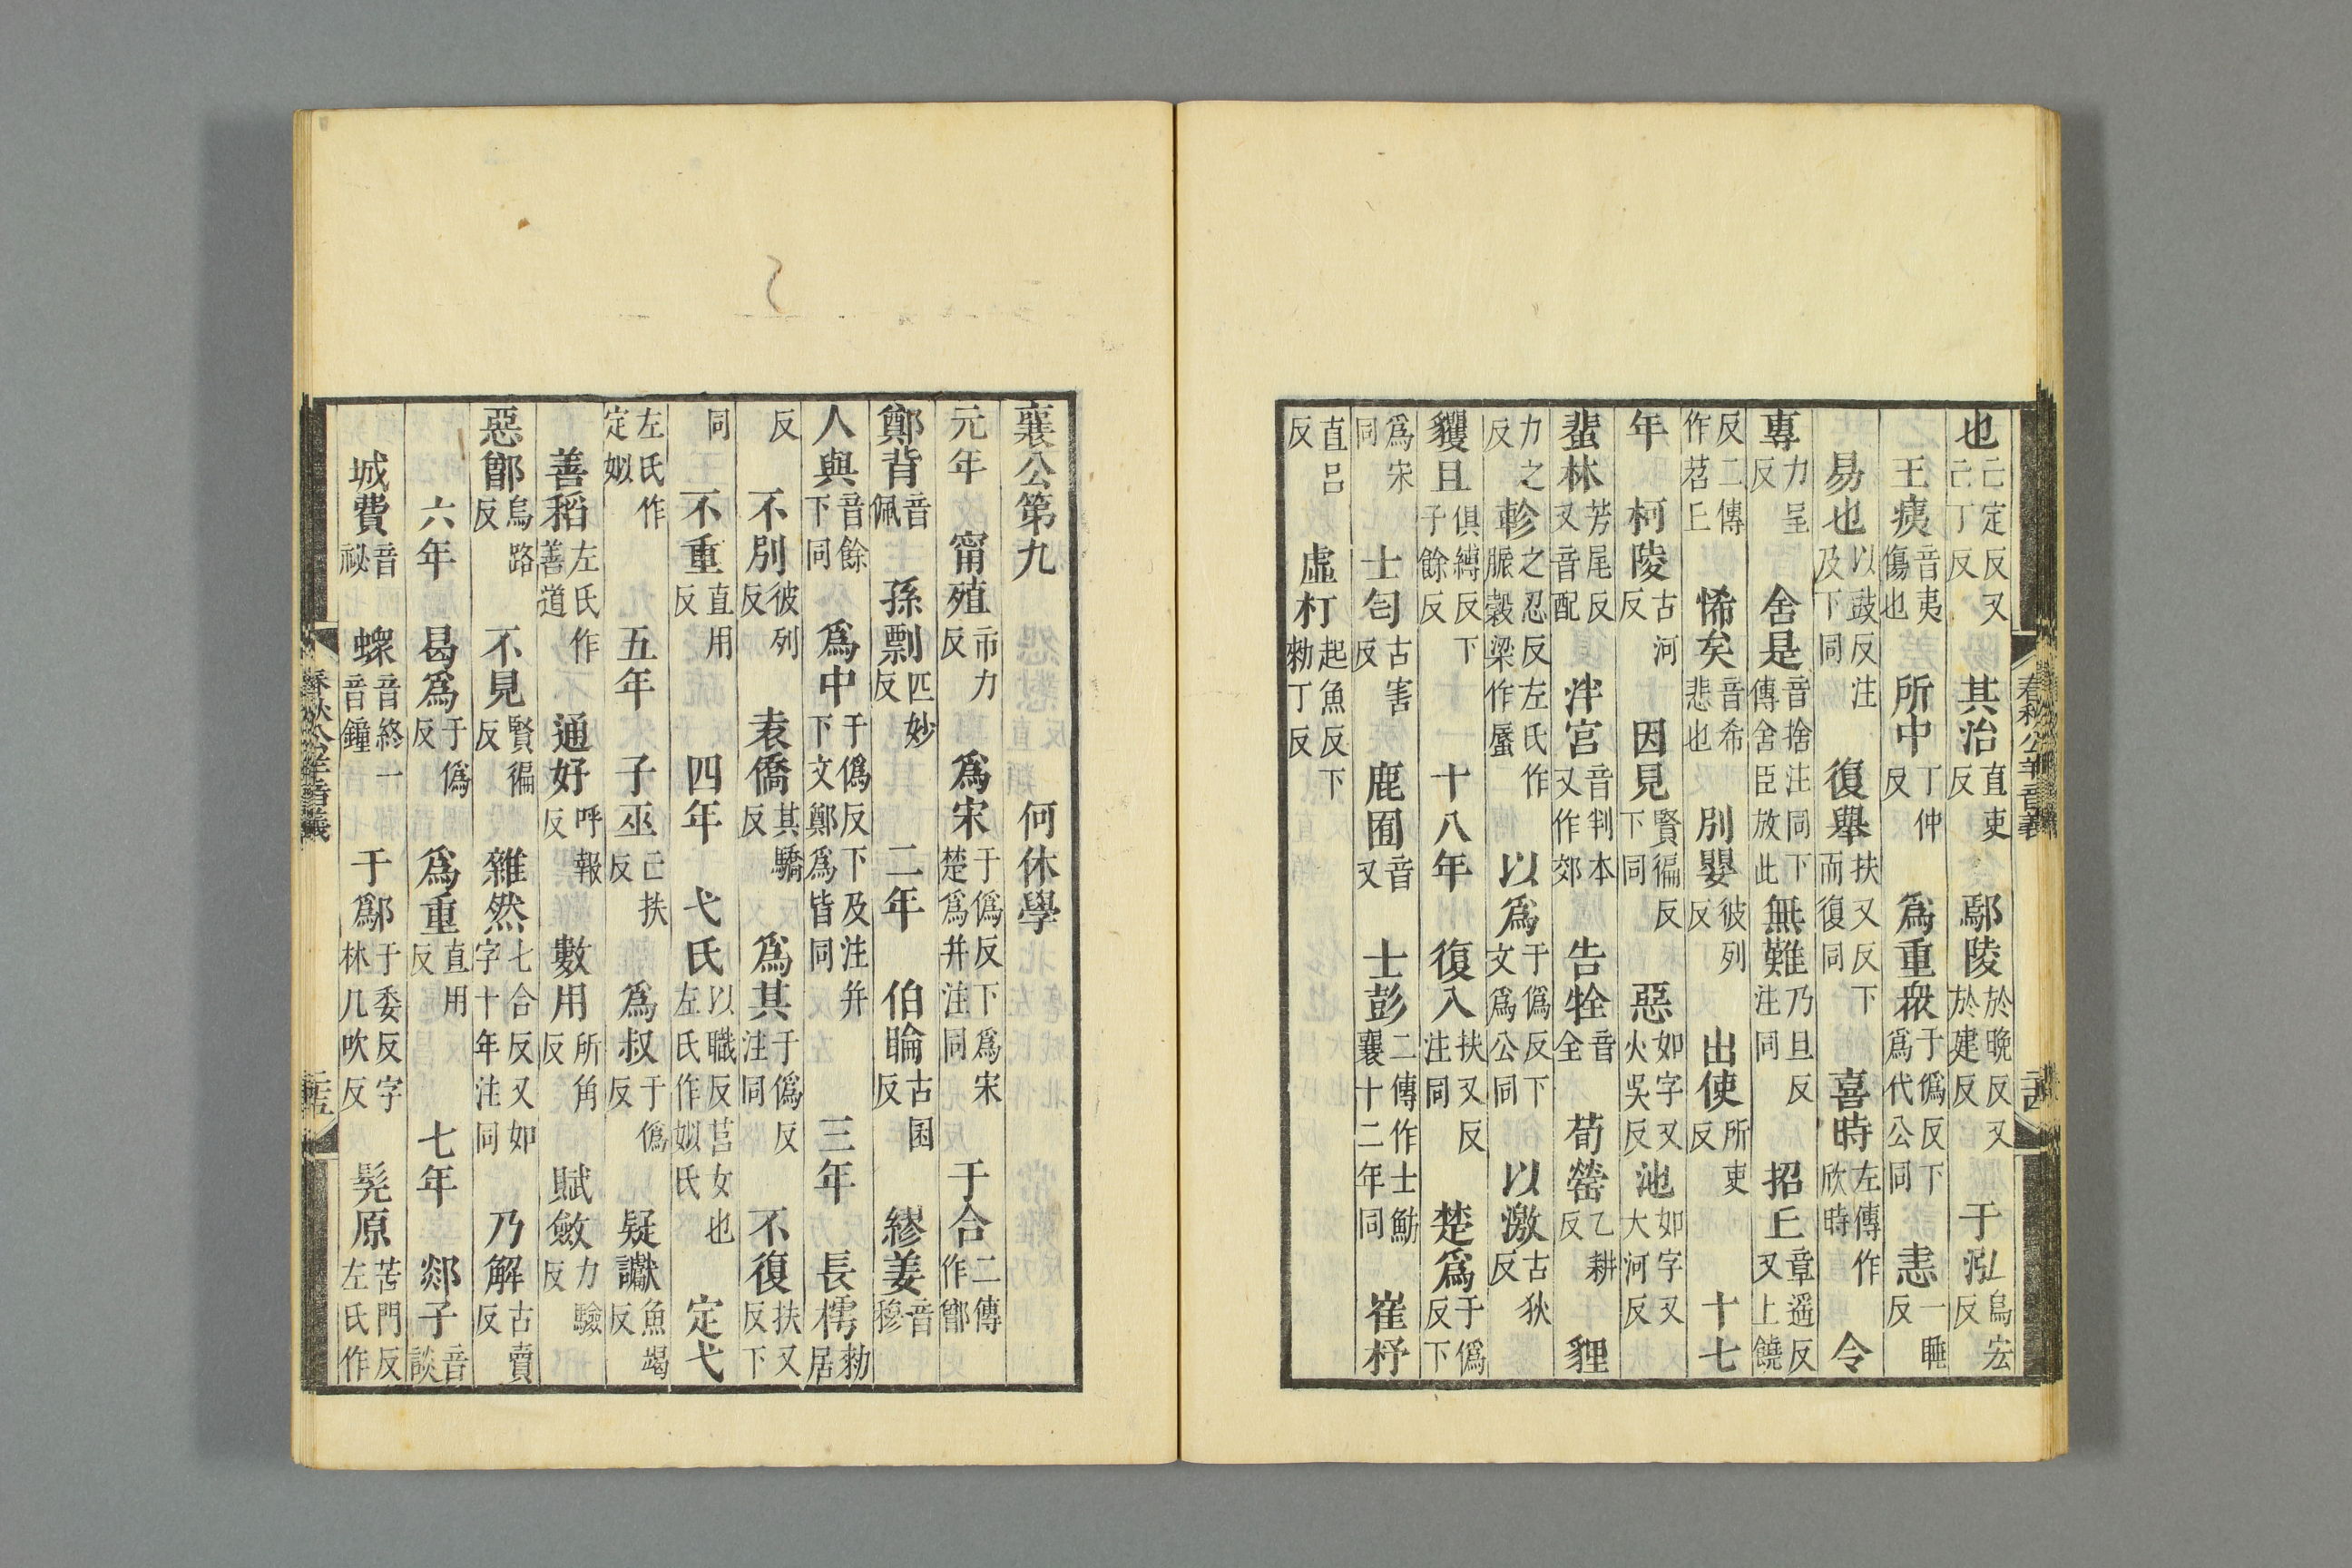 春秋公羊音義
也亡定反又亡丁反 其治直吏反 鄢陵於晚反又於建反 于泓烏宏反
王痍音夷傷也 所中丁仲反 爲重衆于僞反下爲代公同 恚一睡反
易也以豉反注及下同 復舉扶又反下而復同 喜時左傳作欣時 令
專力呈反 舍是音捨注同下傳舍臣放此 無難乃旦反注同 招丘章遥反又上饒
反二傳作苕丘 悕矣音希悲也 別嬰彼列反 出使所吏反 十七
年 柯陵古河反 因見賢徧反下同 惡如字又火吳反 池如字又大河反
蜚林芳尾反又音配 泮宮音判本又作郊 告牷音全 荀罃乙耕反 貍
力之反 軫之忍反左氏作脤穀梁作蜃 以爲于僞反下文爲公同 以激古狄反
貜且俱縛反下子餘反 十八年 復入扶又反注同 楚爲于僞反下
爲宋同 士匄古害反 鹿囿音又 士彭二傳作士魴襄十二年同 崔杼
直呂反 虛朾起魚反下勑丁反
襄公第九 何休學
元年 甯殖市力反 爲宋于僞反下爲宋楚爲并注同 于合二傳作鄫
鄭背音佩 孫剽匹妙反 二年 伯睔古囷反 繆姜音穆
人與音餘下同 爲中于僞反下及注并下文鄭爲皆同 三年 長樗勑居
反 不別彼列反 袁僑其驕反 爲其于僞反注同 不復扶又反下
同 不重直用反 四年 弋氏以職反莒女也左氏作姒氏 定弋
左氏作定姒 五年 子巫亡扶反 爲叔于僞反 疑讞魚竭反
善稻左氏作善道 通好呼報反 數用所角反 賦斂力驗反
惡鄫烏路反 不見賢徧反 雜然七合反又如字十年注同 乃解古賣反
六年 曷爲于僞反 爲重直用反 七年 郯子音談
城費音祕 螽音終一音鐘 于鄬于委反字林几吹反 髡原苦門反左氏作
春秋公羊音義 二十五